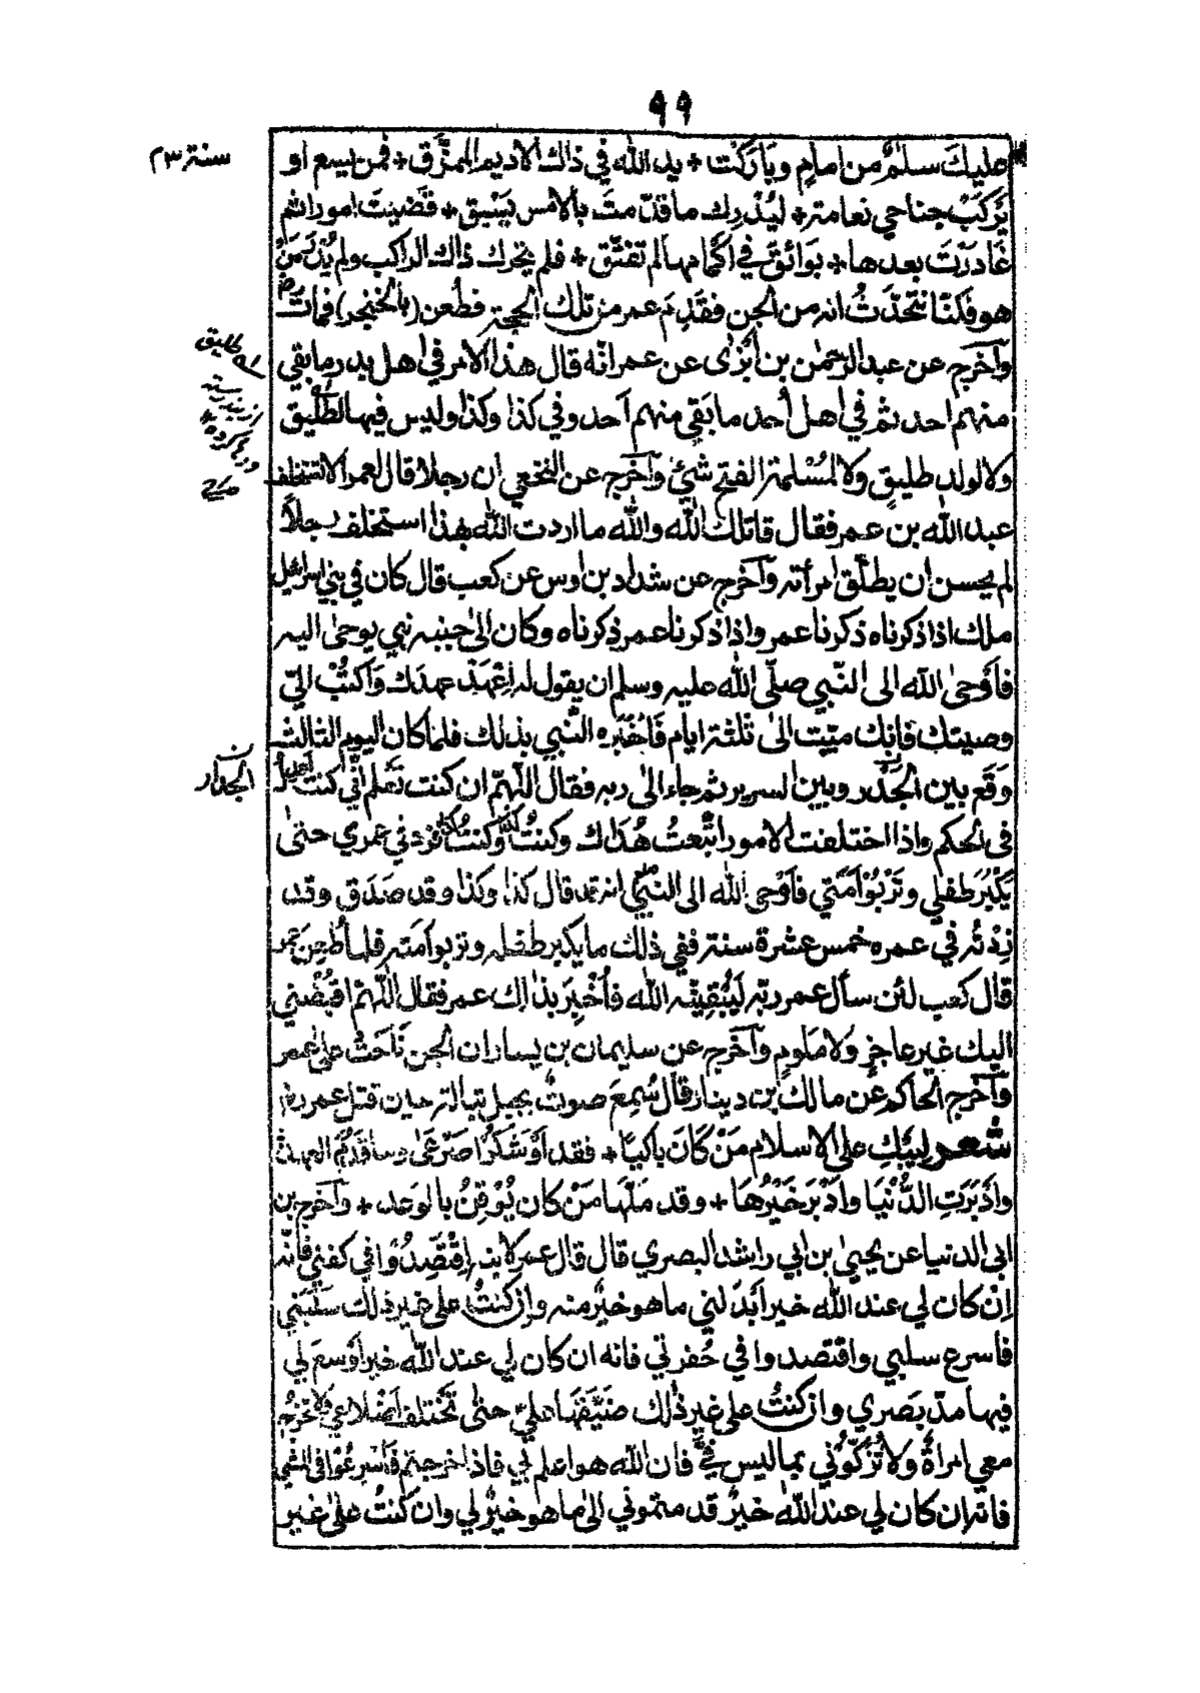 ٩٩
سنة ٢٣
عليك سلمٌ من امام وبَارَكَتْ + يد الله في ذاك الاديم الممزَّق + فمن يسع او
يَرْكَبْ جناحي نعامة + ليُدْرِك ما قدّمتَ بالامس يُسْبَق + قَضَيتَ امورا ثم
غَادَرْتَ بعدها + بَوَائق في اكمامها لم تفتَّق + فلم يتحرك ذاك الراكب ولم يُدْرَ مَنْ
هو فكنّا نتحَدّثُ انه من الجن فقَدِمَ عمر من تلك الحجة فطُعن (بالخنجر) فمات رض
وآخرج عن عبد الرحمٰن بن ابزٰى عن عمر انّه قال هذا الامر في اهل بدر ما بقي
منهم احد ثم في اهل أُحد ما بَقي منهم آحد وفي كذا وكذا وليس فيها لطَلِيق
ولا لولد طليقٍ ولا لمُسْلمة الفتح شيئٌ وآخرج عن النخعي ان رجلا قال لعمر الا تستخلف
عبد الله بن عمر فقال قاتلك الله والله ما اردت الله بهذا استخلف رجلاً
لم يحسن ان يطلّق امرأته وآخرج عن شداد بن اوس عن كعب قال كان في بني اسرائيل
ملك اذا ذكرناه ذكرنا عمر واذا ذكرنا عمر ذكرناه وكان الىٰ جنبه نبي يوحىٰ اليه
فاَوْحىٰ الله الى النّبي صلّى الله عليه وسلم ان يقول له اِعْهَدْ عهدك وَاكتُبْ اليّ
وصيتك فانك ميّت الىٰ ثلثة ايام فَاَخْبَره النّبي بذلك فلما كان اليوم الثالث
وَقَع بين الجُدُر وبين السرير ثم جاء الىٰ ربه فقال اللّهمّ ان كنت تعلم انّي كنت اعدل
الجدار
في الحكم واذا اختلفت الامور اتّبعتُ هُدَاك وكنتُ كذا وكنتُ كذا فزدني عمري حتىٰ
يَكْبُرَ طفلي وتَرْبُوْ اَمَتي فاَوْحى الله الى النّبيّ انه قد قال كذا وكذا وقد صَدَق وقد
زِدْتُه في عمره خمس عشرة سنة ففي ذلك ما يكبر طفله وتربو امَته فلما طُعِنَ عمر
قال كعب لئن سأل عمر ربّه لَيُبْقِيَنَّه الله فاُخْبِرَ بذٰلك عمر فقال اللّهمّ اقبُضْني
اليك غير عاجزٍ ولا مَلومٍ وآخرج عن سليمان بن يسار ان الجن نَاحَتْ على عمر
وآخرج الحاكم عن مالك بن دينار قال سُمِعَ صوتٌ بجبل تبالة حين قتل عمر رض
شعر لِيَبْكِ على الاسلام مَنْ كَانَ باكيًا + فقد اَوْشَكُوْا صَرْعىٰ وما قَدُمَ العهدُ
واَدْبَرَتِ الدُّنْيَا واَدْبَرَ خَيْرُهَا + وقد مَلَّهَا مَنْ كان يُوْقِنُ بالوعد + وآخرج بن
ابي الدنيا عن يحيىٰ بن ابي راشد البصري قال قال عمر لابنه اِقْتَصِدُوْا في كفني فانّه
اِنْ كان لي عند الله خير اَبْدَلَني ما هو خيرٌ منه وان كنتُ على غير ذلك سَلَبَني
فاسرع سلبي واقتصدوا في حُفرتي فانه ان كان لي عند الله خير اَوْسعَ لي
فيها مدّ بَصَري وان كنتُ على غير ذٰلك ضَيَّقَهَا عليّ حتىٰ تَخْتلف اَضْلاعي فلا تخرُج
معي امرأةٌ ولا تُزَكّوْني بما ليس فيَّ فان الله هو اعلم بي فاذا خرجتم فَاَسْرِعُوْا في المشي
فانه ان كان لي عند الله خيرٌ قد متموني الىٰ ما هو خيرٌ لي وان كنتُ علىٰ غير